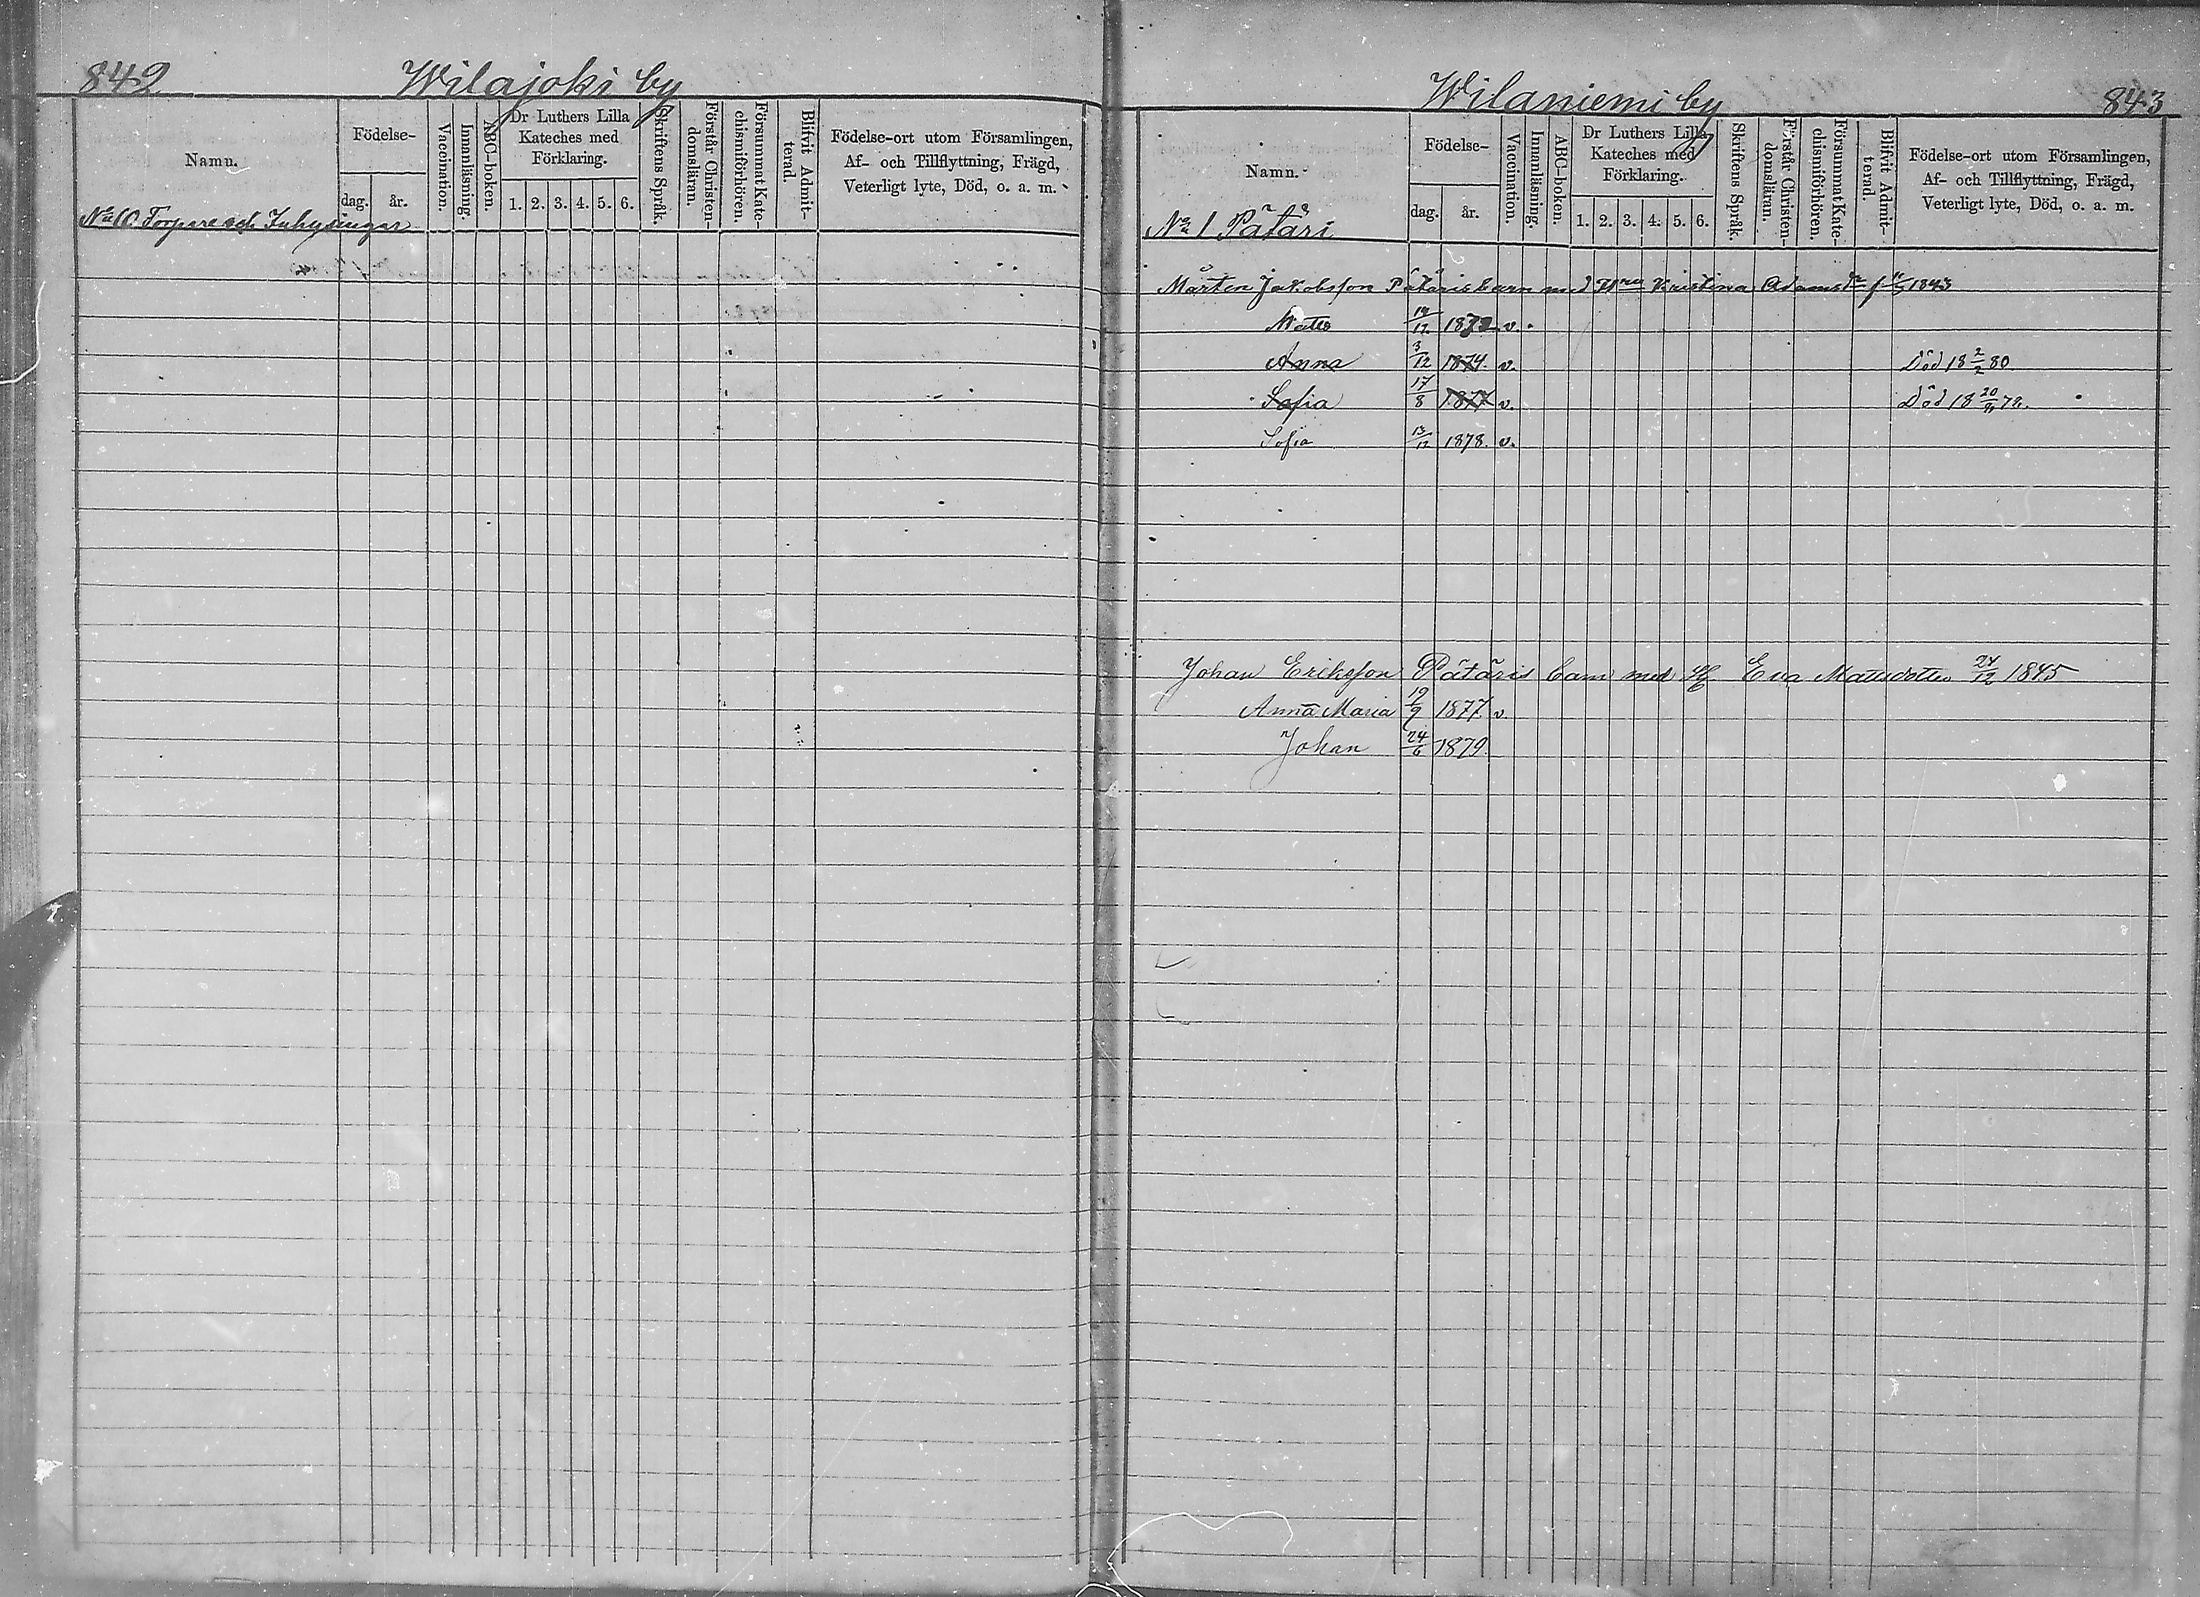 842 Wilajoki by
Namn.
Födelse-
dag. år.
Vaccination.
Innanläsning.
ABC-boken.
Dr Luthers Lilla
Kateches med
Förklaring.
1. 2. 3. 4. 5. 6.
Skriftens Språk.
Förstår Christen-
domsläran.
Försummat Kate-
chismiförhören.
Blifvit Admit-
terad.
Födelse-ort utom Församlingen,
Af- och Tillflyttning, Frägd,
Veterligt lyte, Död, o. a. m.
No 10 Torpare och Inhysingar
Wilaniemi by 843
Namn.
Födelse-
dag. år.
Vaccination.
Innanläsning.
ABC-boken.
Dr Luthers Lilla
Kateches med
Förklaring.
1. 2. 3. 4. 5. 6.
Skriftens Språk.
Förstår Christen-
domsläran.
Försummat Kate-
chismiförhören.
Blifvit Admit-
terad.
Födelse-ort utom Församlingen,
Af- och Tillflyttning, Frägd,
Veterligt lyte, Död, o. a. m.
No 1 Pätäri
Mårten Jakobsson Pätäris barn med Kristina Adamsdr 1843
Matts 12 v.
Anna 3/12 1874. v. Död 18 2/2 80
Sofia 17/8 1877 v. Död 18 78.
Sofia 13/12 1878. v.
Johan Eriksson Pätäris barn med H Eva Mattsdotter 24/12 1845
Anna Maria 19/9 1877 v.
Johan 24/6 1879.